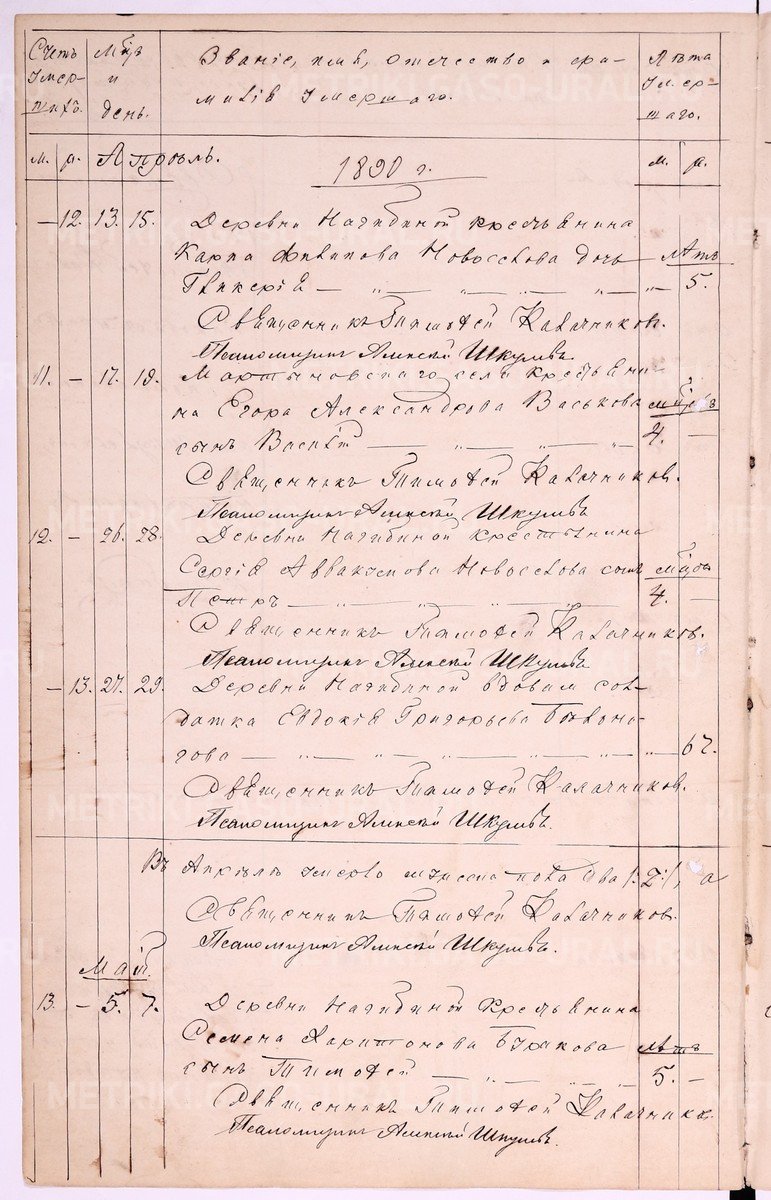 Счетъ умер-шихъ.
Мѣсяцъ и день.
Званіе, имя, отечество и фа-
милія умершаго.
Лѣта умер-шаго.
м. р. Апрѣль. 1890 г. м. р.
— 12. 13. 15. Деревни Нагибиной крестьянина
Карпа Филипова Новоселова дочь лѣтъ
Гликерія — „ — „ — „ — „ — 5.
Священникъ Тимофей Калачниковъ.
Псаломщикъ Алексѣй Шкулевъ.
11. — 17. 19. Мартыновскаго села крестьяни-
на Егора Александрова Васькова мѣсяцовъ
сынъ Василій — „ — „ — 4. —
Священникъ Тимофей Калачниковъ.
Псаломщикъ Алексѣй Шкулевъ
12. — 26. 28. Деревни Нагибиной крестьянина
Сергія Аввакумова Новоселова сынъ мѣсяцовъ
Петръ — „ — „ — „ — 4. —
Священникъ Тимофей Калачниковъ.
Псаломщикъ Алексѣй Шкулевъ
— 13. 27. 29. Деревни Нагибиной вдовая сол-
датка Евдокія Григорьева
гова — „ — „ — „ — „ — „ — 67.
Священникъ Тимофей Калачниковъ.
Псаломщикъ Алексѣй Шкулевъ.
Въ Апрѣлѣ умерло мужеска пола два /: 2 :/, а
Священникъ Тимофей Калачниковъ.
Псаломщикъ Алексѣй Шкулевъ.
Май.
13. — 5. 7. Деревни Нагибиной крестьянина
Семена Харитонова Бункова лѣтъ
сынъ Тимофей — „ — „ — 5. —
Священникъ Тимофей Калачниковъ
Псаломщикъ Алексѣй Шкулевъ.